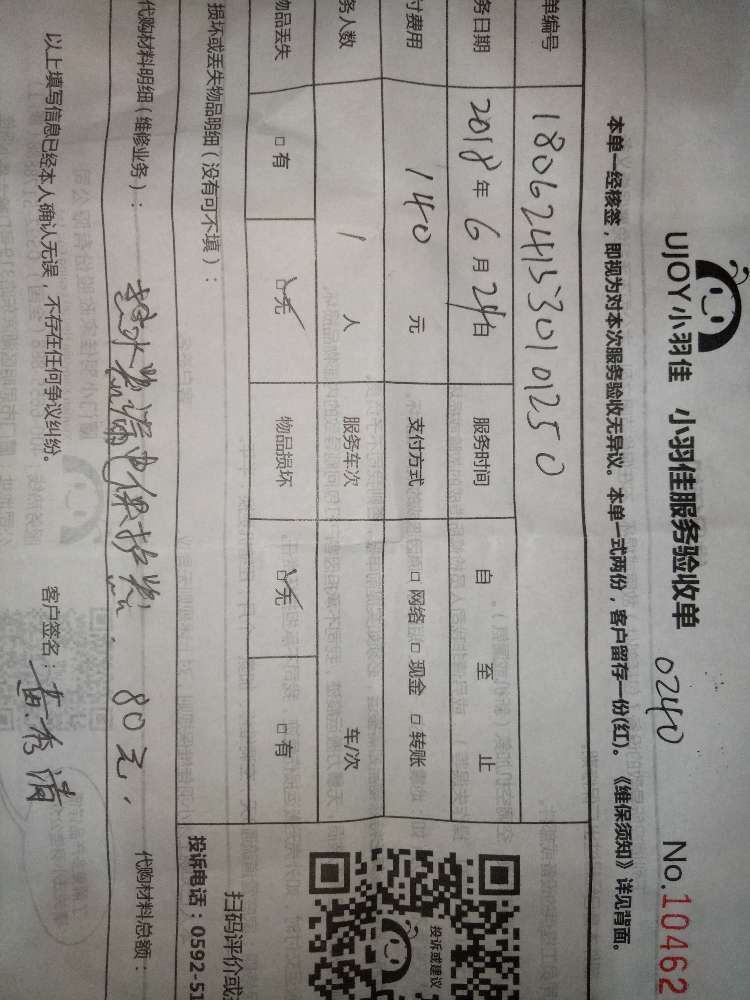 UJOY小羽佳 小羽佳服务验收单 0240 No.10462
本单一经核签，即视为对本次服务验收无异议。本单一式两份，客户留存一份(红)。《维保须知》详见背面。
单编号 1806241530101250
务日期 2018年6月24日 服务时间 自 至 止
付费用 140元 支付方式 □网络 □现金 □转账
务人数 1人 服务车次 车/次
物品丢失 □有 □无 物品损坏 □无 □有
损坏或丢失物品明细（没有可不填）：
代购材料明细（维修业务）： 热水器漏电保护器，80元， 代购材料总额：
以上填写信息已经本人确认无误，不存在任何争议纠纷。 客户签名：黄秀清
投诉或建议
扫码评价或
投诉电话：0592-51